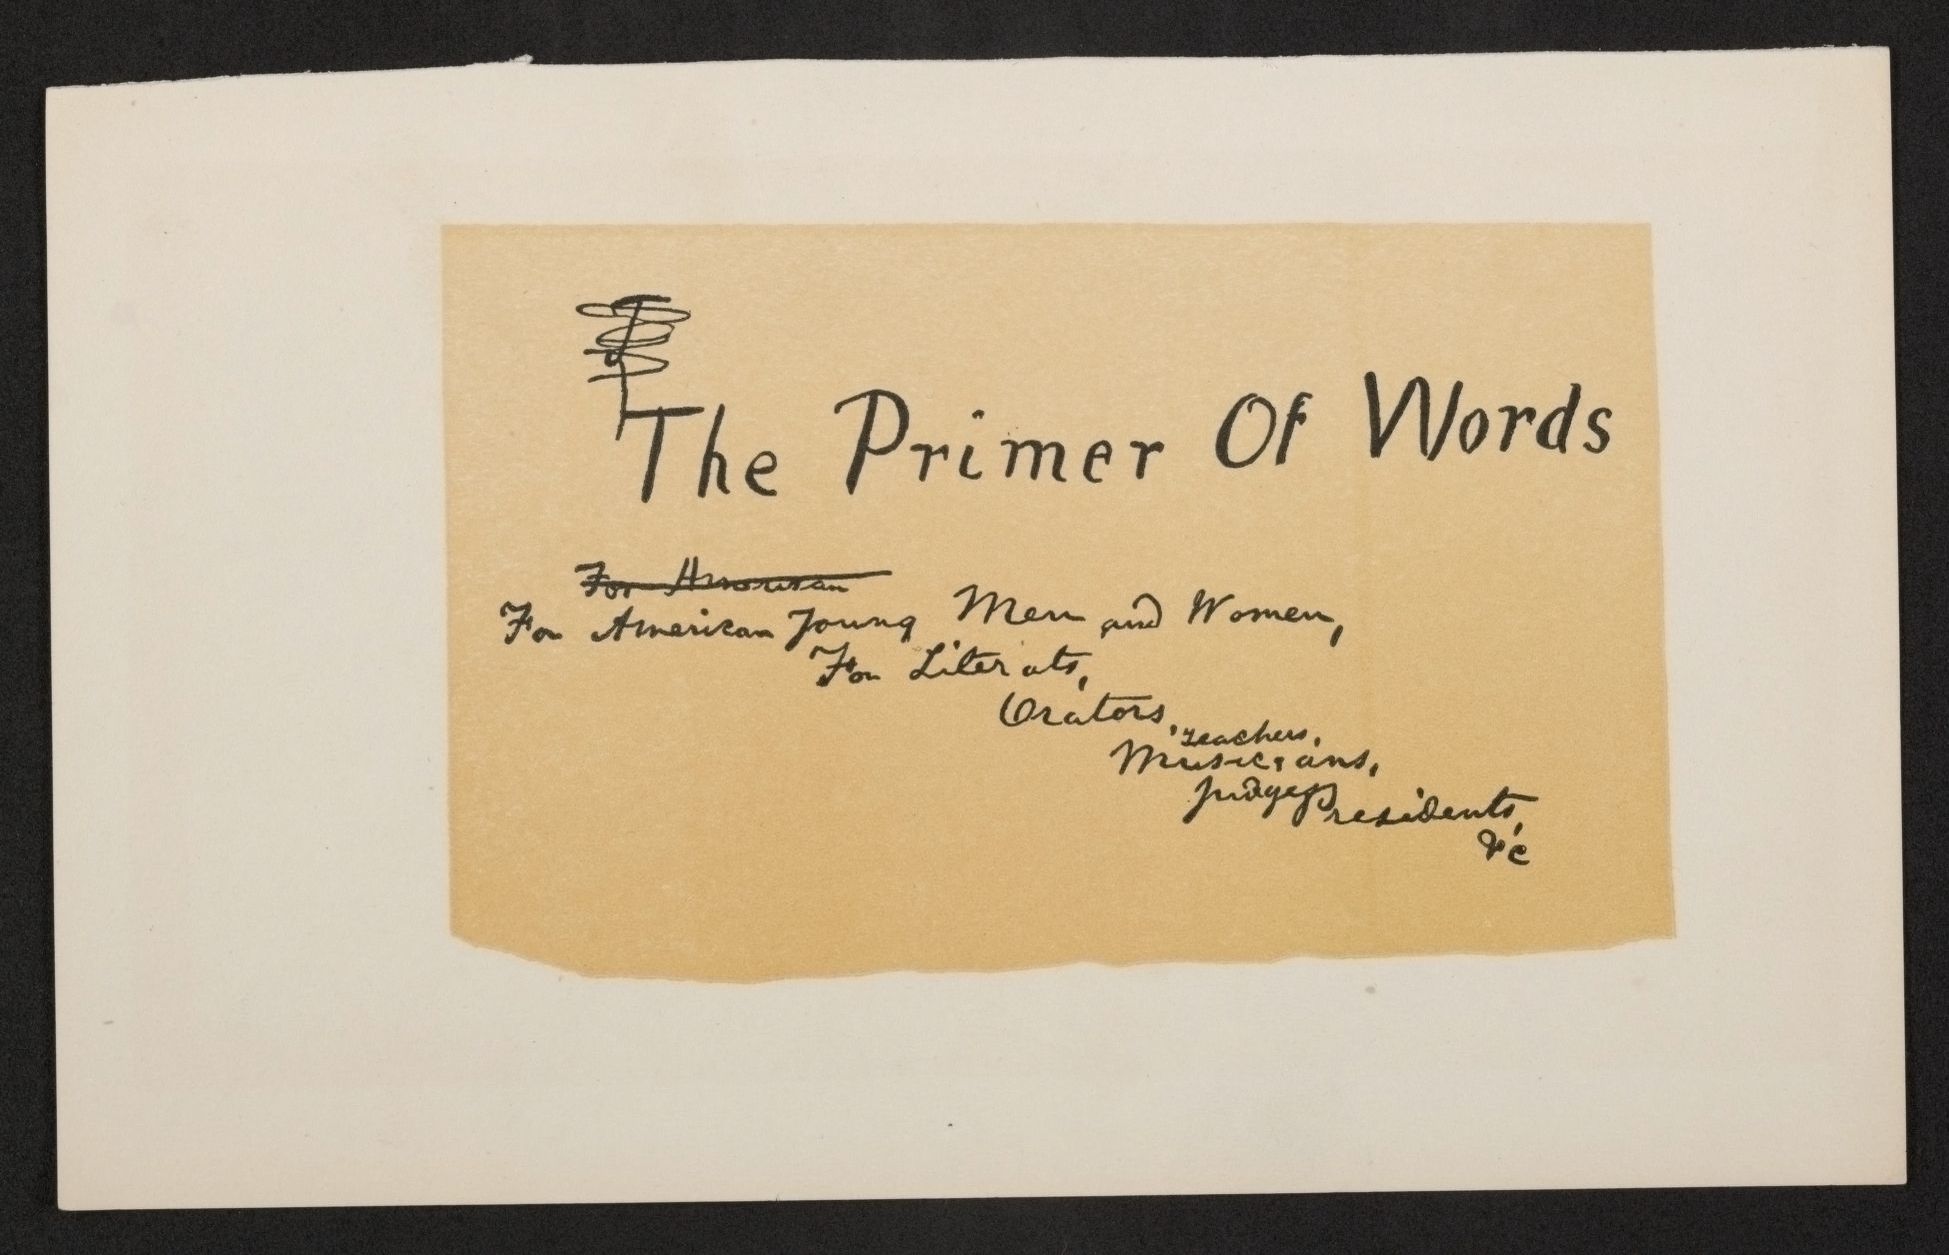 The Primer Of Words
For American
For American Young Men and Women,
For Literats,
Orators,
Teachers,
Musicians,
Judges, Presidents,
&c